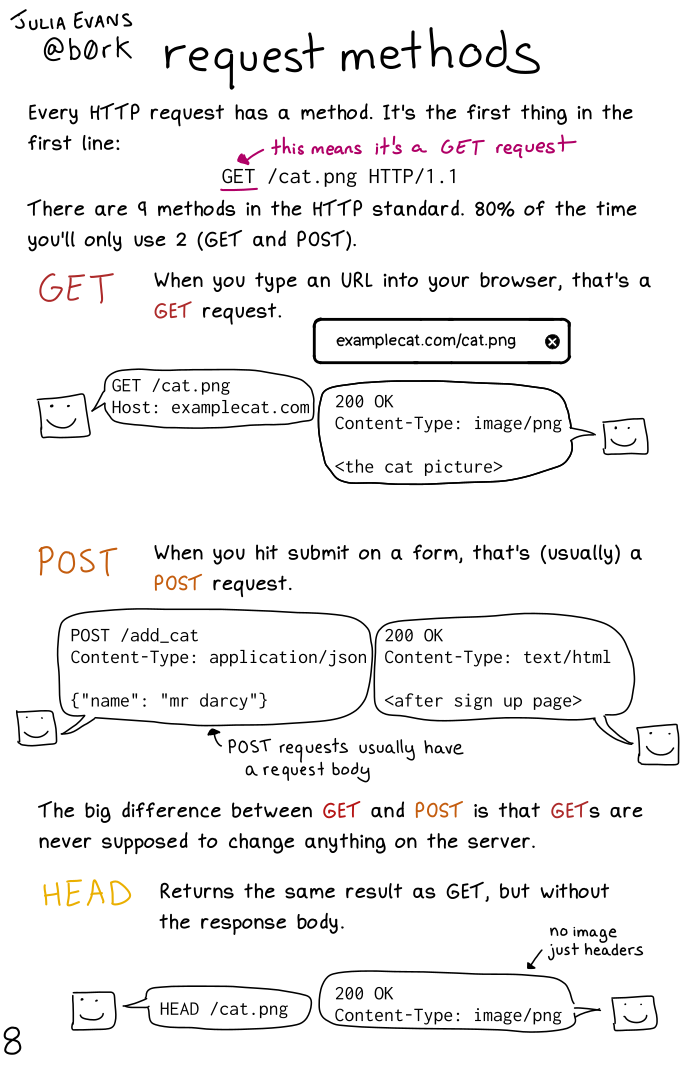 JULIA EVANS
@b0rk
request methods
Every HTTP request has a method. It's the first thing in the
first line:
this means it's a GET request
GET /cat.png HTTP/1.1
There are 9 methods in the HTTP standard. 80% of the time
you'll only use 2 (GET and POST).
GET
When you type an URL into your browser, that's a
GET request.
examplecat.com/cat.png
GET /cat.png
Host: examplecat.com
200 OK
Content-Type: image/png
<the cat picture>
POST
When you hit submit on a form, that's (usually) a
POST request.
POST /add_cat
Content-Type: application/json
{"name": "mr darcy"}
200 OK
Content-Type: text/html
<after sign up page>
POST requests usually have
a request body
The big difference between GET and POST is that GETs are
never supposed to change anything on the server.
HEAD
Returns the same result as GET, but without
the response body.
no image
just headers
HEAD /cat.png
200 OK
Content-Type: image/png
8